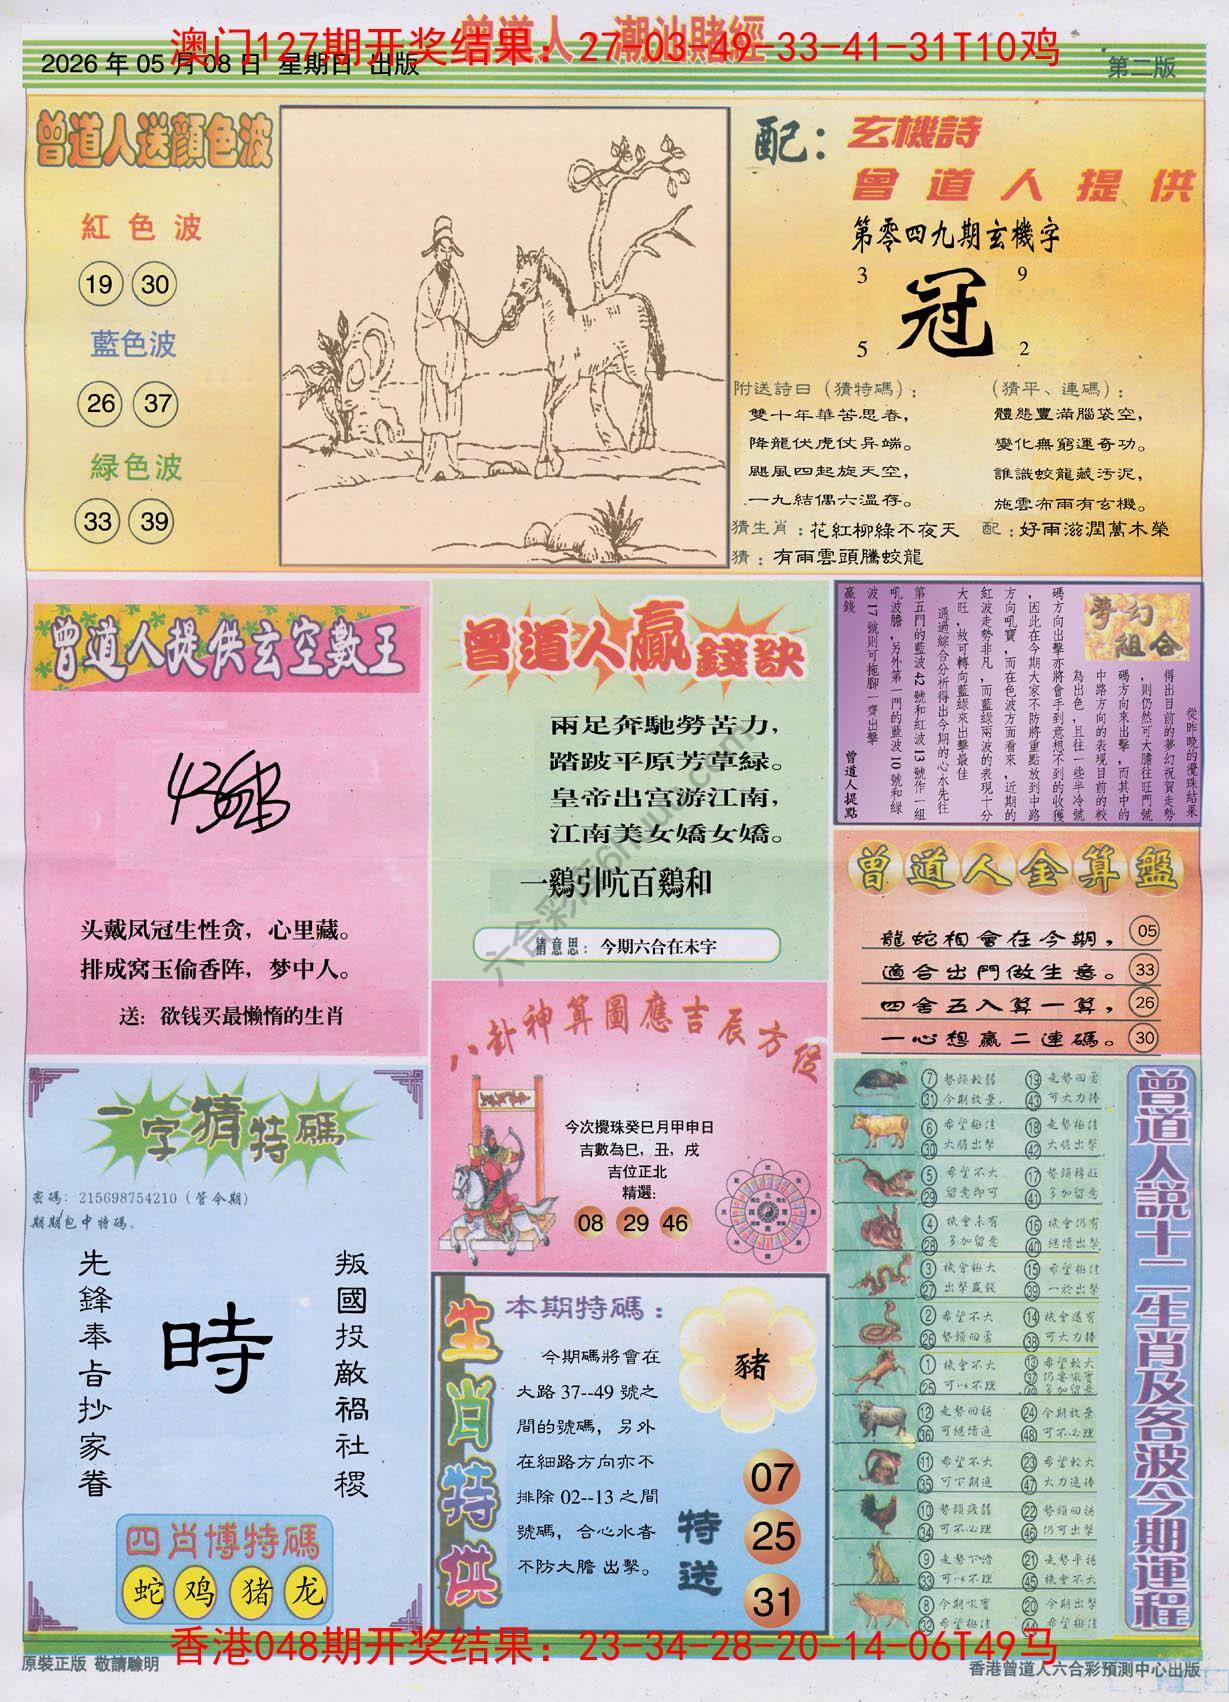 曾道人 潮汕賭經
澳门127期开奖结果：27-03-49-33-41-31T10鸡
2026 年 05 月 08 日 星期日 出版
第二版
曾道人送顏色波
紅色波
19 30
藍色波
26 37
緑色波
33 39
配：玄機詩
曾道人提供
第零四九期玄機字
3 9
冠
5 2
附送詩曰（猜特碼）：
雙十年華苦思春，
降龍伏虎仗昇端。
颶風四起旋天空，
一九結偶六溫存。
（猜平、連碼）：
體態豐滿腦袋空，
變化無窮運奇功。
誰識蛟龍藏汚泥，
施雲布雨有玄機。
猜生肖：花紅柳綠不夜天
配：好雨滋潤萬木榮
猜：有雨雲頭騰蛟龍
曾道人提供玄空數王
头戴凤冠生性贪，心里藏。
排成窝玉偷香阵，梦中人。
送：欲钱买最懒惰的生肖
曾道人贏錢訣
兩足奔馳勞苦力，
踏跛平原芳草緑。
皇帝出宫游江南，
江南美女嬌女嬌。
一鷄引吭百鷄和
猜意思：今期六合在未字
夢幻組合
從昨晚的攪珠結果
得出目前的夢幻祝賀走勢
，則仍然可大膽往旺門號
碼方向來出擊，而其中的
中路方向的表現目前的較
為出色，且往一些半冷號
碼方向出擊亦將會手到意想不到的收獲
，因此在今期大家不防將重點放到中路
方向吼寶，而在色波方面看來，近期的
紅波走勢非凡，而藍綠兩波的表現十分
大旺，故可轉向藍綠來出擊最佳
通過綜合分析得出今期的心水先往
第五門的藍波 42 號和紅波 13 號作一組
吼波膽，另外第一門的藍波 10 號和綠
波 17 號則可拖腳一齊出擊
贏錢
曾道人提點
曾道人金算盤
龍蛇相會在今期， 05
適合出門做生意。 33
四舍五入算一算， 26
一心想贏二連碼。 30
八卦神算圖應吉辰方位
今次攪珠癸巳月甲申日
吉數為巳，丑，戌
吉位正北
精選：
08 29 46
一字猜特碼
密碼：215698754210（管今期）
期期包中特碼。
先鋒奉旨抄家眷
時
叛國投敵禍社稷
四肖博特碼
蛇 鸡 猪 龙
生肖特供
本期特碼：
今期碼將會在
大路 37--49 號之
間的號碼，另外
在細路方向亦不
排除 02--13 之間
號碼，合心水者
不防大膽 出擊。
豬
特送
07
25
31
曾道人説十二生肖及各波今期運程
7 勢頭較弱 19 走勢回勇
31 今期放棄 43 可大力捧
6 希望極佳 18 走勢極佳
30 大膽出擊 42 大膽出擊
5 希望不大 17 勢頭轉旺
29 留意即可 41 多加留意
4 機會未有 16 機會仍有
28 多加留意 40 繼續出擊
3 機會極大 15 希望極佳
27 出擊贏錢 39 一於出擊
2 希望不大 14 機會還有
26 勢頭回勇 38 可大力捧
1 機會不大 13 希望較大
25 可以不理 37 49 多加留意
12 走勢回穩 24 今期放棄
36 可繼續追 48 可不必理
11 希望不大 23 希望較大
35 可下期追 47 大力追捧
10 勢頭殘弱 22 勢頭回穩
34 可不必理 46 仍可出擊
9 走勢下滑 21 走勢平穩
33 可以不理 45 機會不大
8 今期吼寶 20 今期出擊
32 希望極佳 44 希望極佳
香港048期开奖结果：23-34-28-20-14-06T49马
原裝正版 敬請驗明
香港曾道人六合彩預測中心出版